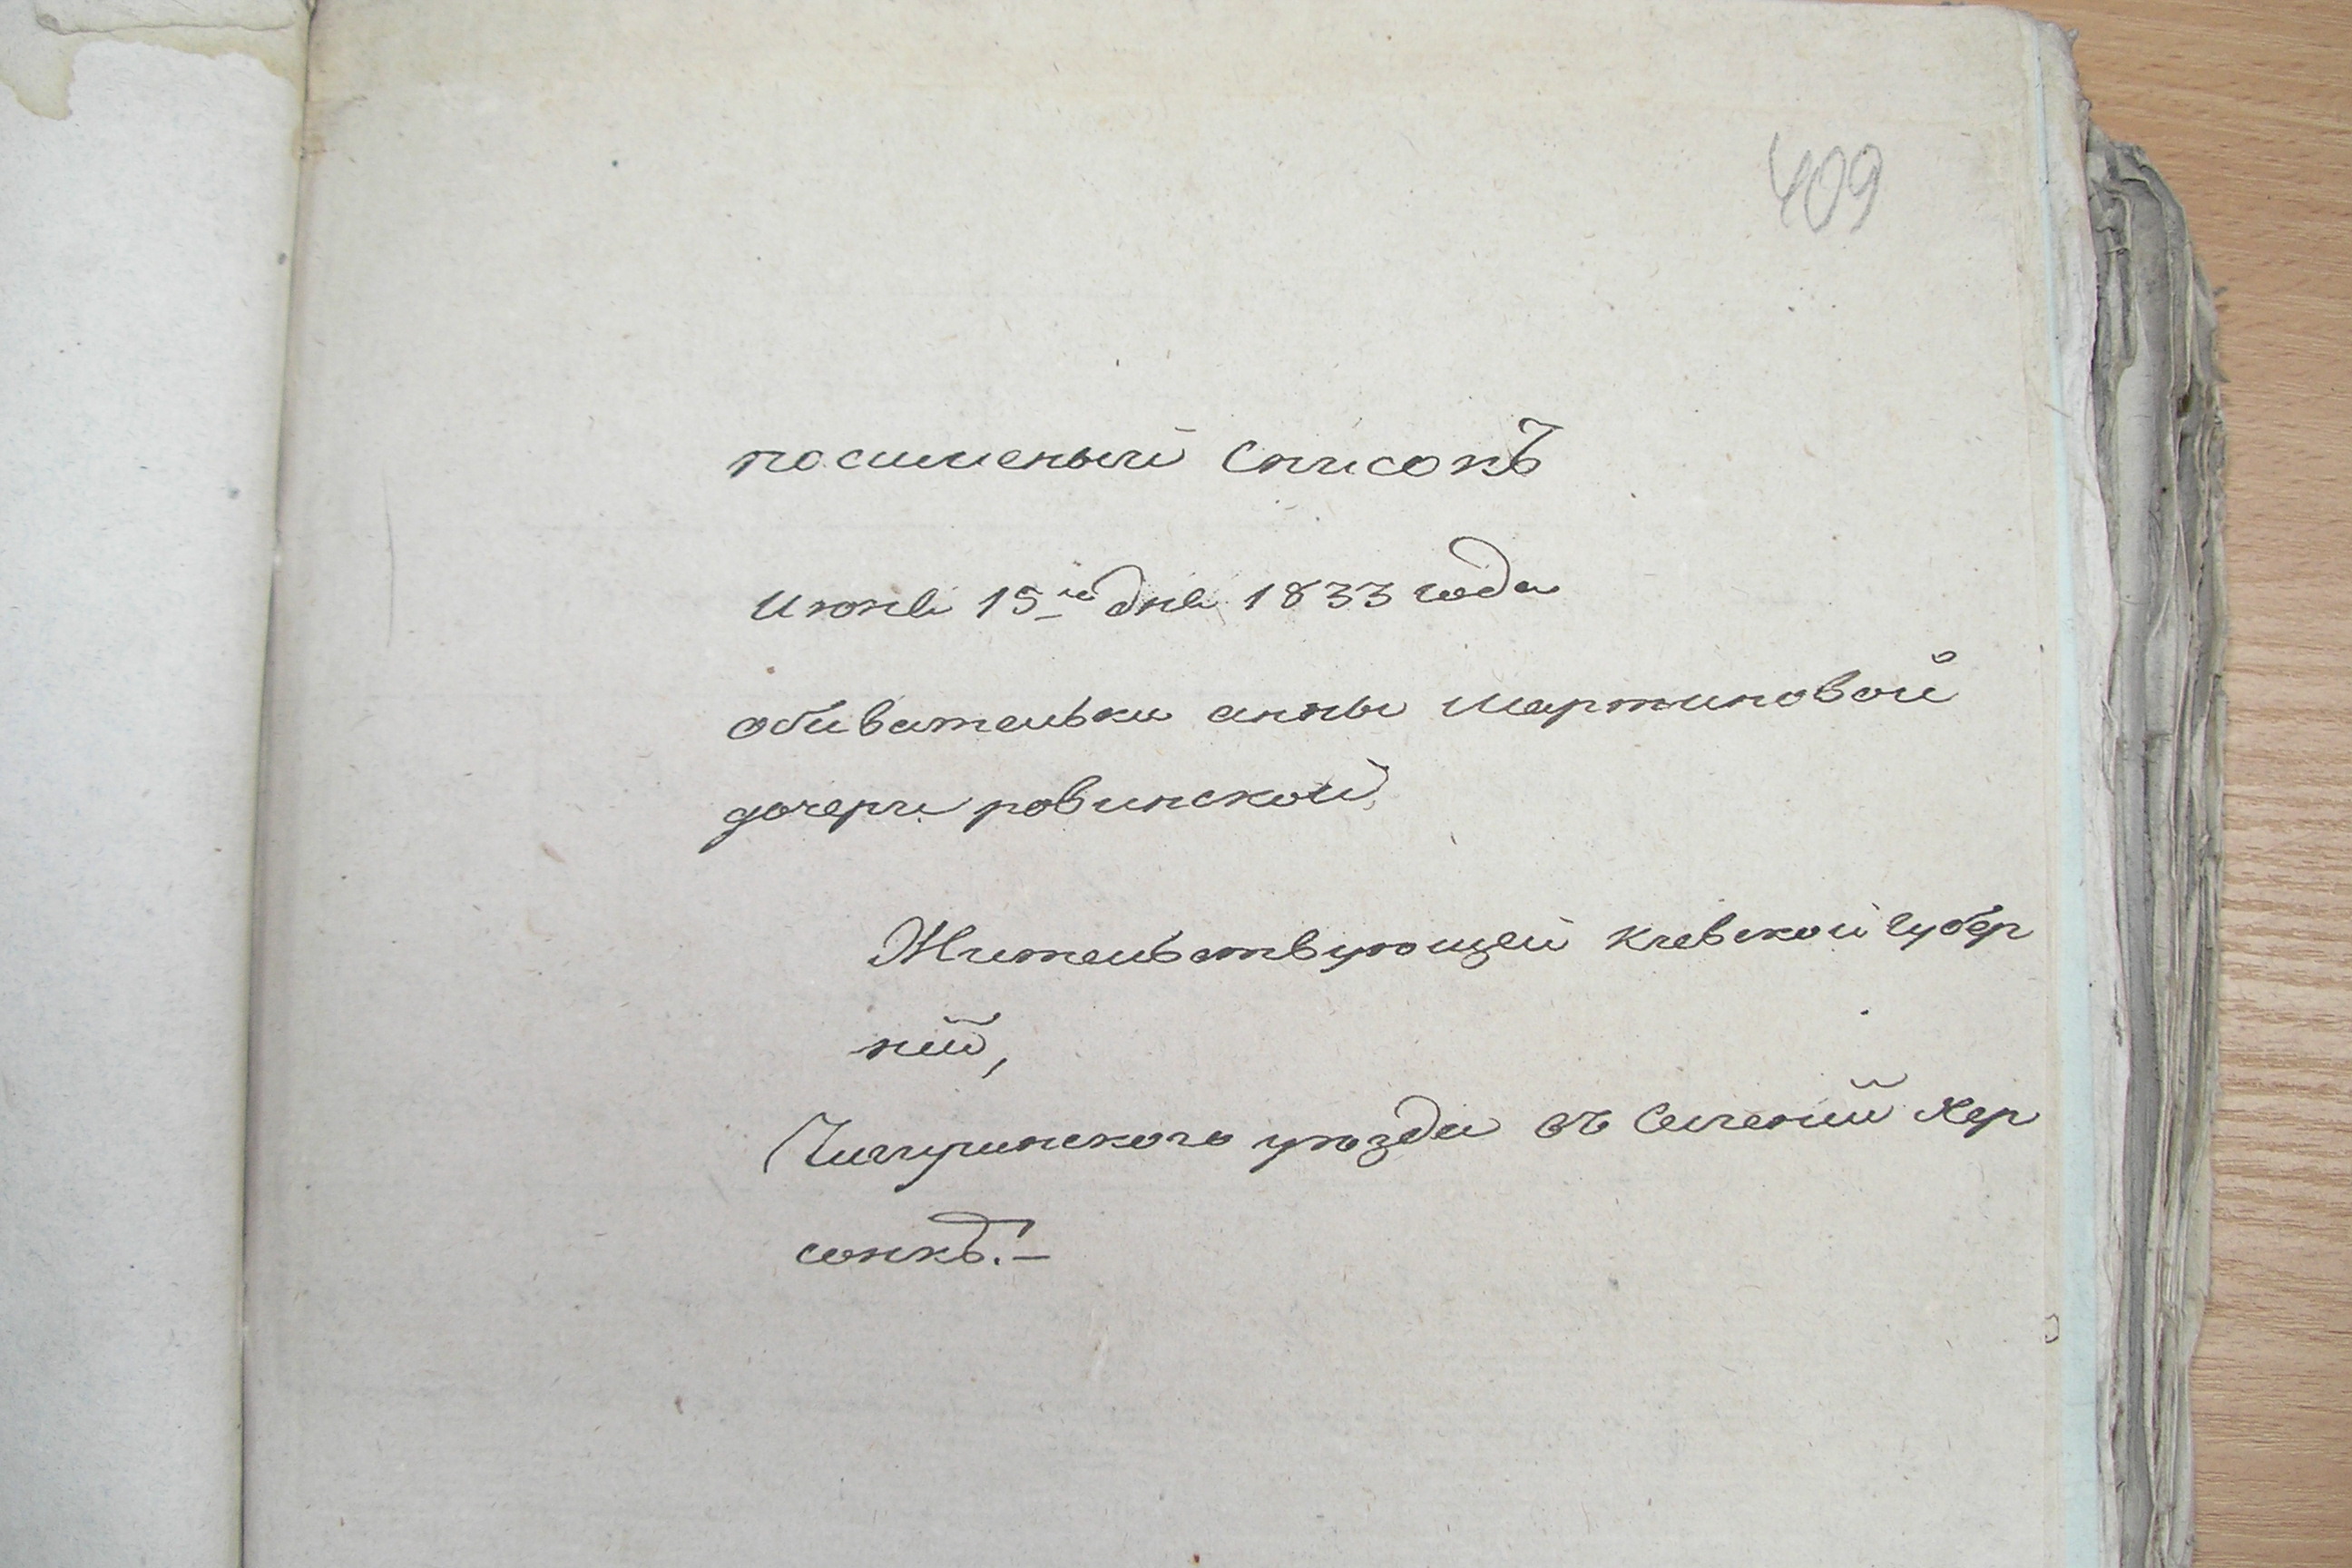 409
посименый Списокъ
Июня 15го дня 1833 года
обивательки анны мартиновой
дочери ровинской
Жительствующей киевской губер
нии,
Чигиринского уюзда въ Селений Хер
сонкѣ.-